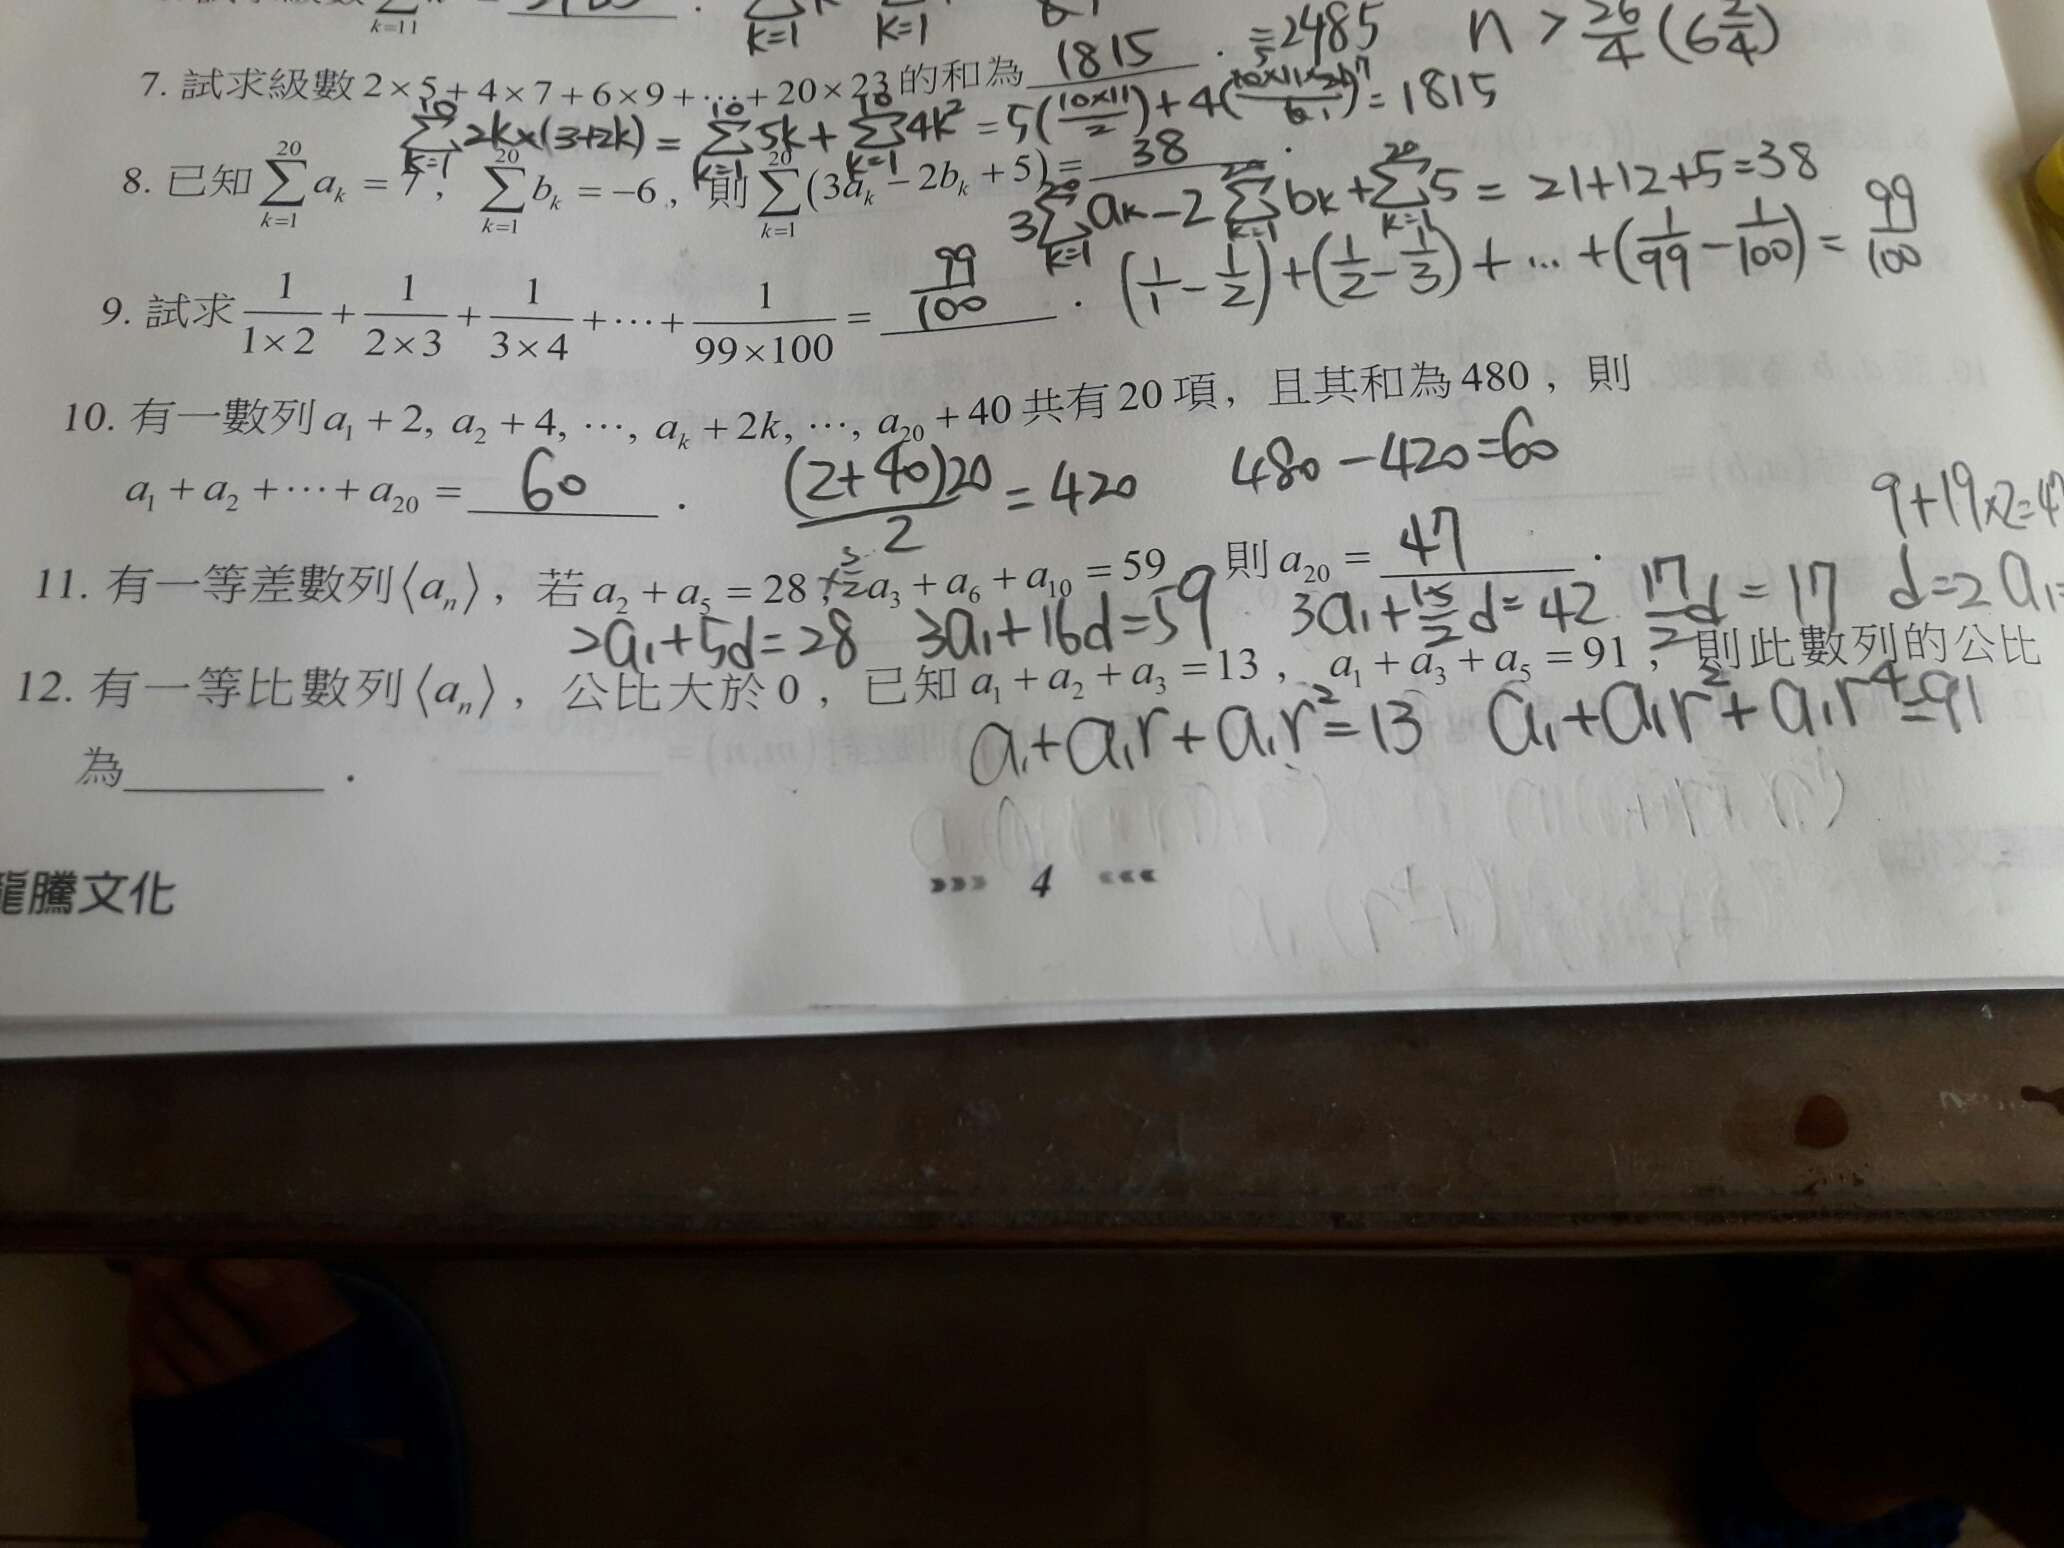 k=11
k=1 k=1
=2485 n > 26/4 (6 2/4)
7. 試求級數 2×5+4×7+6×9+⋯+20×23 的和為 1815 .
∑_{k=1}^{10} 2k×(3+2k) = ∑_{k=1}^{10} 5k + ∑_{k=1}^{10} 4k² = 5(10×11/2)+4(10×11×21/6) = 1815
8. 已知 ∑_{k=1}^{20} a_k = 7, ∑_{k=1}^{20} b_k = -6, 則 ∑_{k=1}^{20} (3a_k - 2b_k + 5) = 38 .
3∑_{k=1}^{20} a_k - 2∑_{k=1}^{20} b_k + ∑_{k=1}^{20} 5 = 21+12+5=38
9. 試求 1/(1×2) + 1/(2×3) + 1/(3×4) + ⋯ + 1/(99×100) = 99/100 . (1/1 - 1/2)+(1/2 - 1/3)+ ⋯ +(1/99 - 1/100) = 99/100
10. 有一數列 a₁+2, a₂+4, ⋯, a_k+2k, ⋯, a₂₀+40 共有 20 項, 且其和為 480, 則
a₁+a₂+⋯+a₂₀ = 60 . (2+40)20/2 = 420 480-420=60
9+19×2=47
11. 有一等差數列⟨a_n⟩, 若 a₂+a₅=28, a₃+a₆+a₁₀=59, 則 a₂₀= 47 .
2a₁+5d=28 3a₁+16d=59 3a₁+15/2 d=42 17/2 d=17 d=2 a₁=
12. 有一等比數列⟨a_n⟩, 公比大於 0, 已知 a₁+a₂+a₃=13, a₁+a₃+a₅=91, 則此數列的公比
a₁+a₁r+a₁r²=13 a₁+a₁r²+a₁r⁴=91
為 .
龍騰文化
4